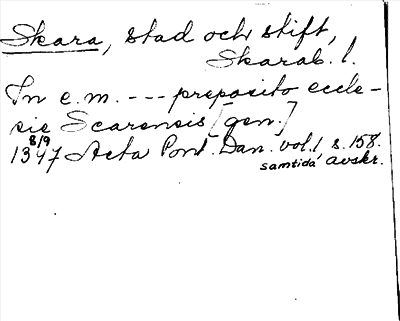 Skara, stad och stift,
Skarab. l.
In e.m. --- preposito eccle-
sie Scarensis [gen.]
8/9
1347 Acta Pont. Dan. vol. 1, s. 158.
samtida avskr.